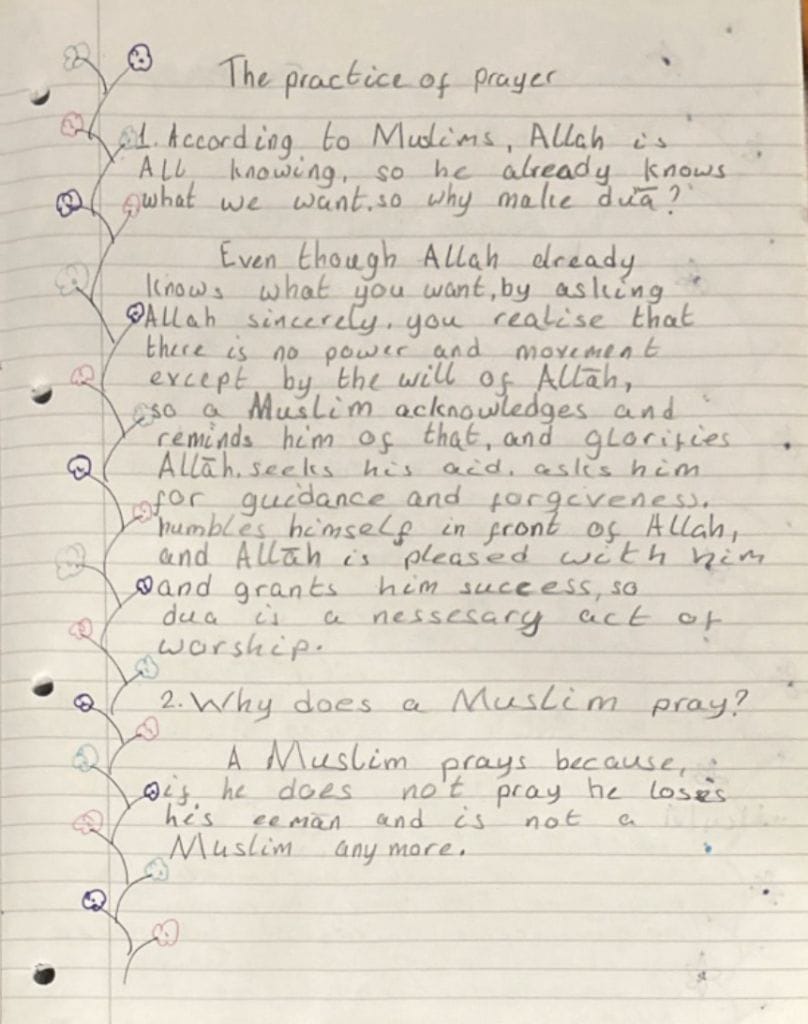 The practice of prayer
1. According to Muslims, Allah is
All knowing, so he already knows
what we want, so why make duā?
Even though Allah already
knows what you want, by asking
Allah sincerely, you realise that
there is no power and movement
except by the will of Allāh,
so a Muslim acknowledges and
reminds him of that, and glorifies
Allāh, seeks his aid, asks him
for guidance and forgiveness,
humbles himself in front of Allah,
and Allāh is pleased with him
and grants him success, so
dua is a nessesary act of
worship.
2. Why does a Muslim pray?
A Muslim prays because,
if he does not pray he loses
his eeman and is not a
Muslim anymore.